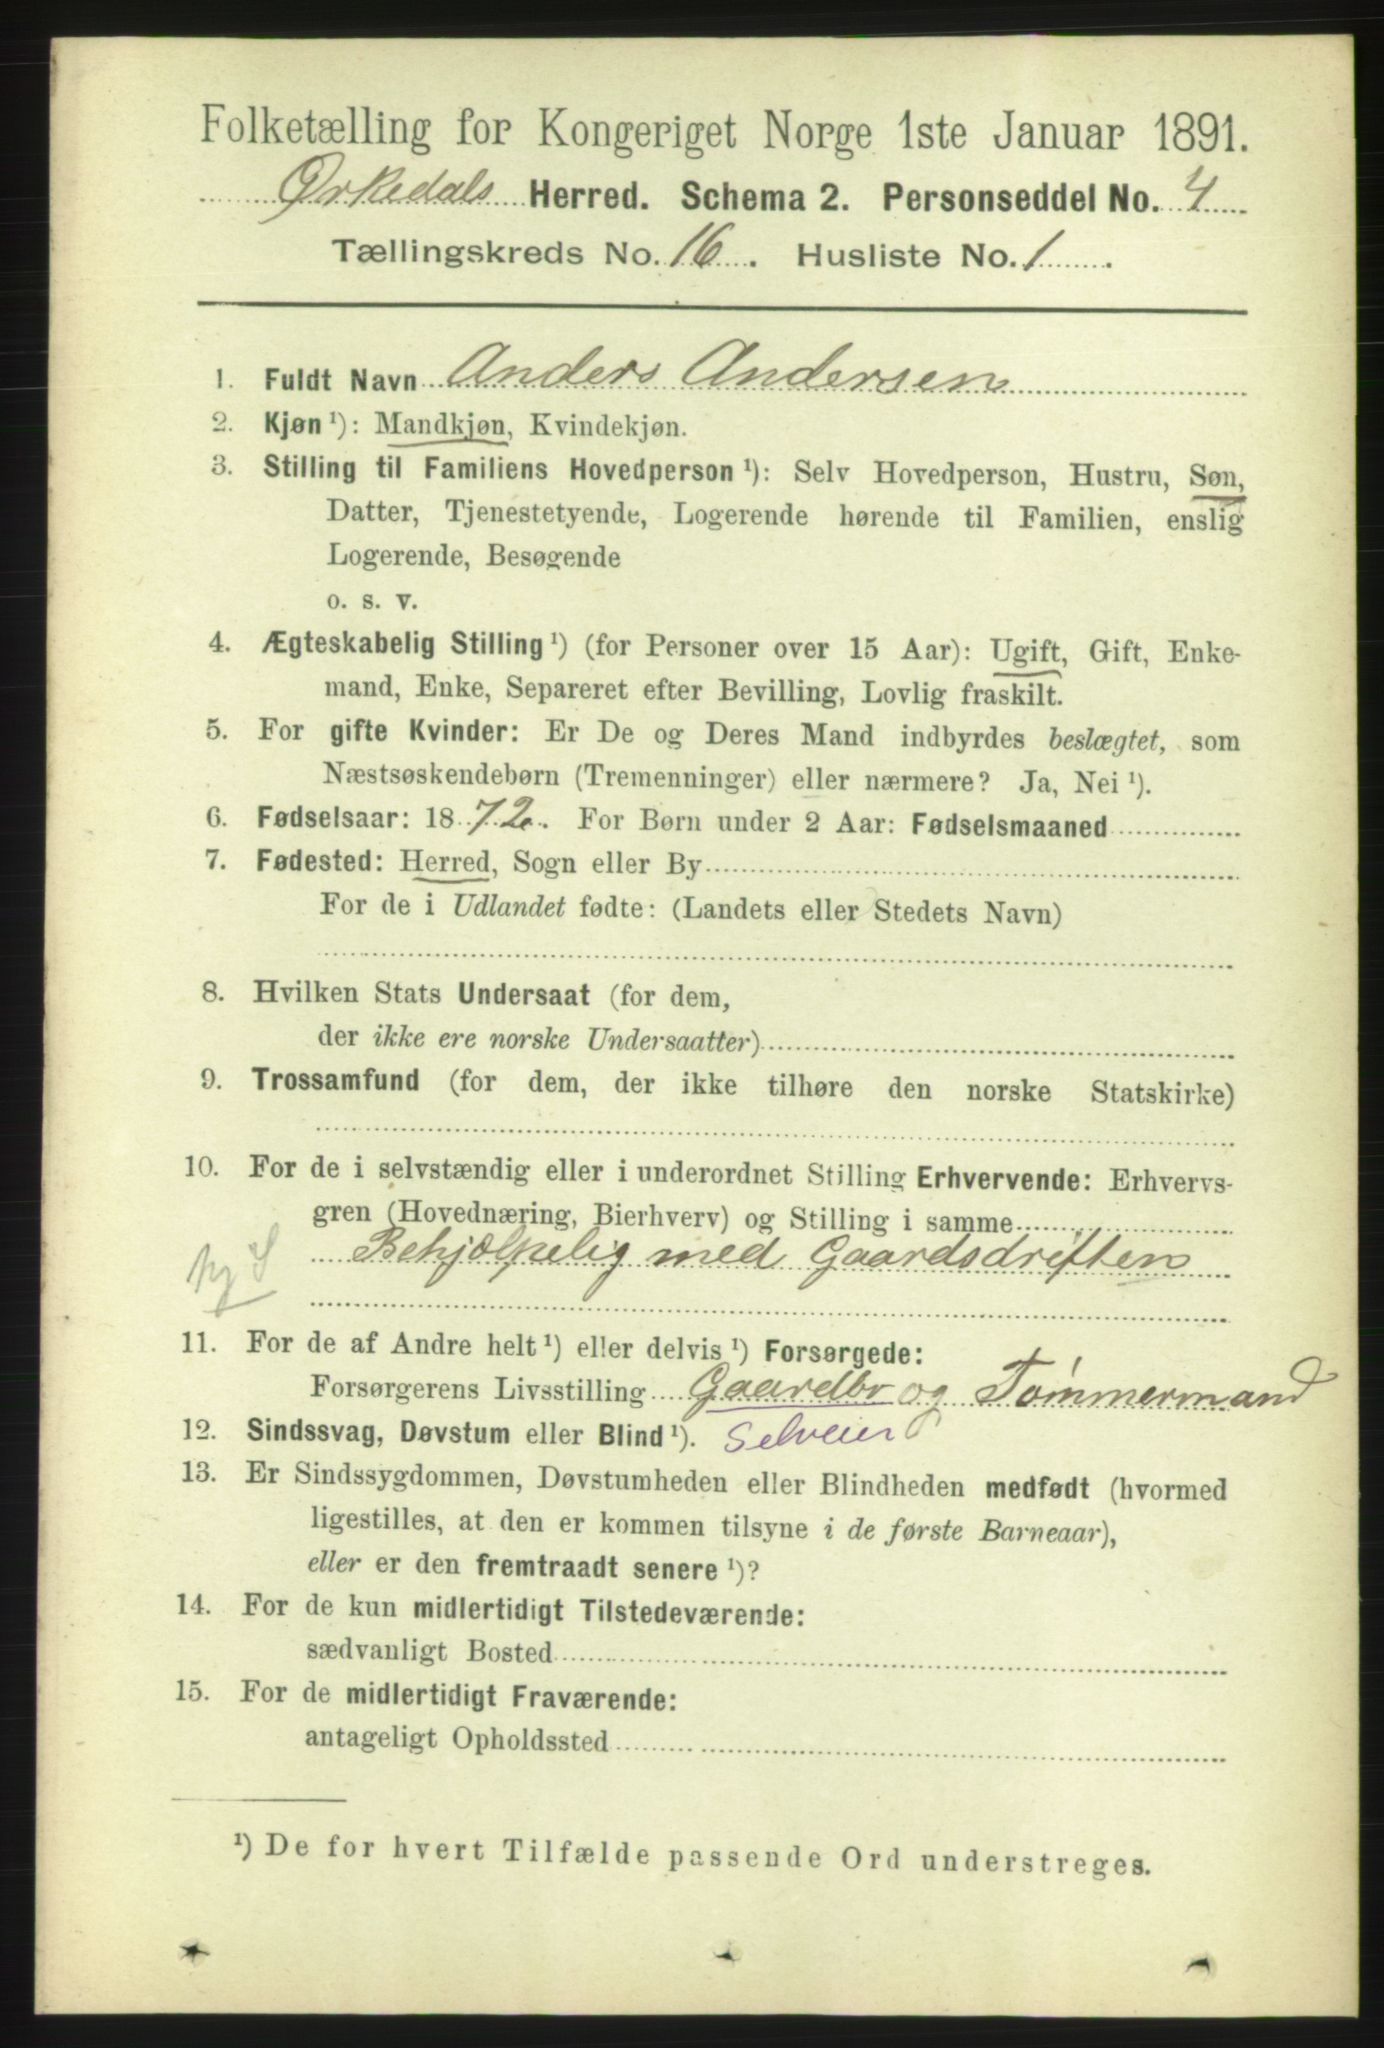 Folketælling for Kongeriget Norge 1ste Januar 1891.
Ørkedals Herred. Schema 2. Personseddel No. 4
Tællingskreds No. 16. Husliste No. 1.
1. Fuldt Navn Anders Andersen
2. Kjøn ¹): Mandkjøn, Kvindekjøn.
3. Stilling til Familiens Hovedperson ¹): Selv Hovedperson, Hustru, Søn,
Datter, Tjenestetyende, Logerende hørende til Familien, enslig
Logerende, Besøgende
o. s. v.
4. Ægteskabelig Stilling ¹) (for Personer over 15 Aar): Ugift, Gift, Enke-
mand, Enke, Separeret efter Bevilling, Lovlig fraskilt.
5. For gifte Kvinder: Er De og Deres Mand indbyrdes beslægtet, som
Næstsøskendebørn (Tremenninger) eller nærmere? Ja, Nei ¹).
6. Fødselsaar: 1872. For Børn under 2 Aar: Fødselsmaaned
7. Fødested: Herred, Sogn eller By
For de i Udlandet fødte: (Landets eller Stedets Navn)
8. Hvilken Stats Undersaat (for dem,
der ikke ere norske Undersaatter)
9. Trossamfund (for dem, der ikke tilhøre den norske Statskirke)
10. For de i selvstændig eller i underordnet Stilling Erhvervende: Erhvervs-
gren (Hovednæring, Bierhverv) og Stilling i samme
Behjælpelig med Gaardsdriften
11. For de af Andre helt ¹) eller delvis ¹) Forsørgede:
Forsørgerens Livsstilling Gaardbr og Tømmermand
12. Sindssvag, Døvstum eller Blind ¹). Selveier
13. Er Sindssygdommen, Døvstumheden eller Blindheden medfødt (hvormed
ligestilles, at den er kommen tilsyne i de første Barneaar),
eller er den fremtraadt senere ¹)?
14. For de kun midlertidigt Tilstedeværende:
sædvanligt Bosted
15. For de midlertidigt Fraværende:
antageligt Opholdssted
¹) De for hvert Tilfælde passende Ord understreges.